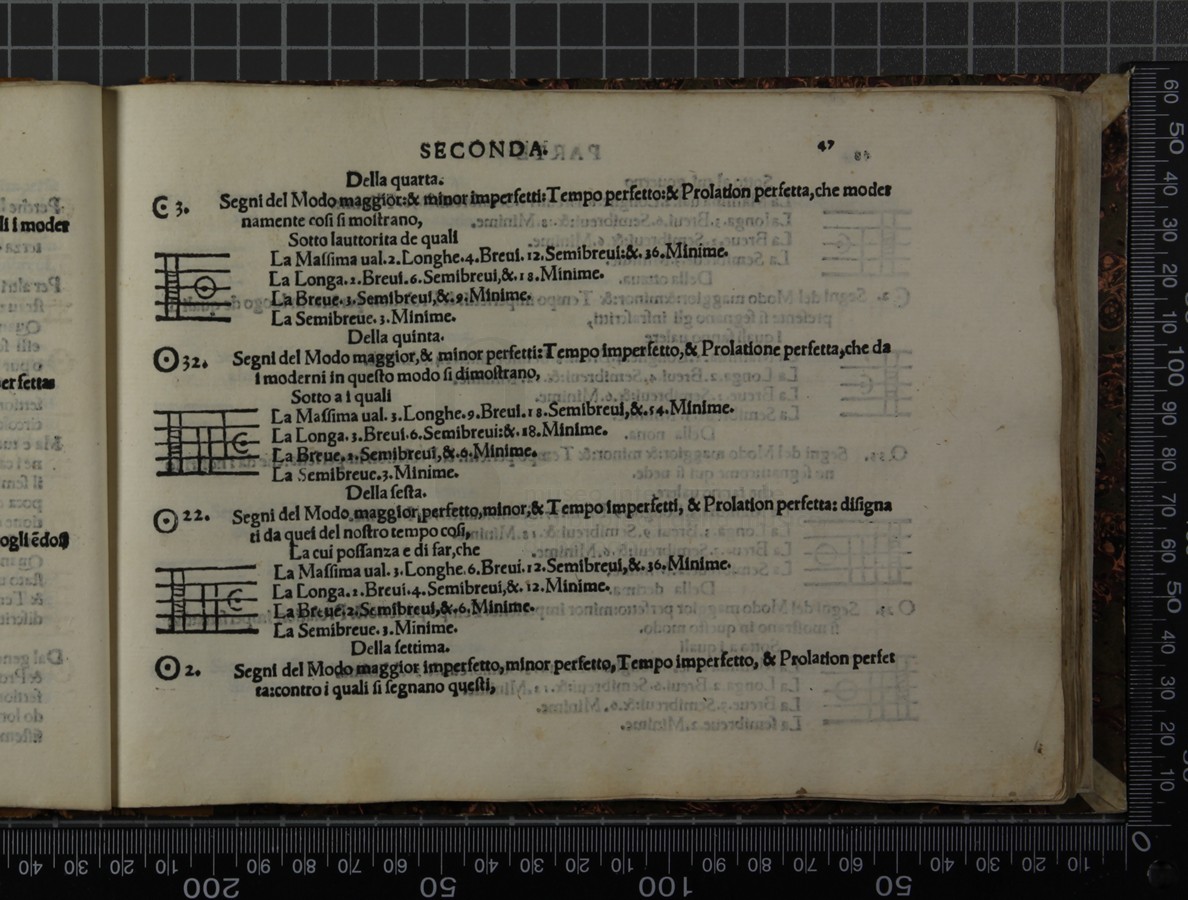 SECONDA. 47
Della quarta.
C 3. Segni del Modo maggior:& minor imperfetti: Tempo perfetto:& Prolation perfetta, che moder
namente cosi si mostrano,
Sotto lauttorita de quali
La Massima ual. 2. Longhe. 4. Breui. 12. Semibreui:&. 36. Minime.
La Longa. 2. Breui. 6. Semibreui,&. 18. Minime.
La Breue. 3. Semibreui,&. 9. Minime.
La Semibreue. 3. Minime.
Della quinta.
32. Segni del Modo maggior,& minor perfetti: Tempo imperfetto,& Prolatione perfetta, che da
i moderni in questo modo si dimostrano,
Sotto a i quali
La Massima ual. 3. Longhe. 9. Breui. 18. Semibreui,&. 54. Minime.
La Longa. 3. Breui. 6. Semibreui:&. 18. Minime.
La Breue. 2. Semibreui,&. 6. Minime.
La Semibreue. 3. Minime.
Della sesta.
22. Segni del Modo maggior, perfetto, minor,& Tempo imperfetti, & Prolation perfetta: disigna
ti da quei del nostro tempo cosi,
La cui possanza e di far, che
La Massima ual. 3. Longhe. 6. Breui. 12. Semibreui,&. 36. Minime.
La Longa. 2. Breui. 4. Semibreui,&. 12. Minime.
La Breue. 2. Semibreui,&. 6. Minime.
La Semibreue. 3. Minime.
Della settima.
2. Segni del Modo maggior imperfetto, minor perfetto, Tempo imperfetto, & Prolation perfet
ta: contro i quali si segnano questi,